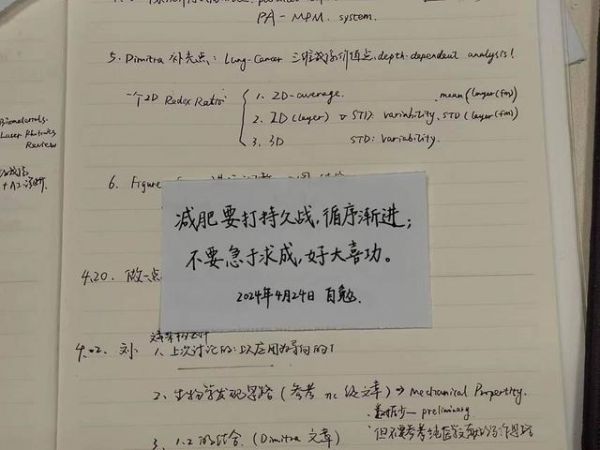 PA - MPM. system.
5. Dimitra 补充点: Lung-Cancer 三维成像价值点, depth-dependent analysis!
一个2D Redox Ratio
1. 2D-average. mean (layer(fm)
2. 2D (layer) STD: variability. STD (layer(fm)
3. 3D STD: variability.
Biomaterials.
Laser Photonics
Review
6. Figure
减肥要打持久战,循序渐进;
不要急于求成,好大喜功。
2024年4月24日 自勉.
4.20. 做一点
4.02. 刘 1. 上次讨论的: 以应用为导向的!
2. 生物学发现思路 (参考 nc 级文章) → Mechanical Propertity.
数据少 — preliminary
3. 1.2 的结合. (Dimitra 文章)